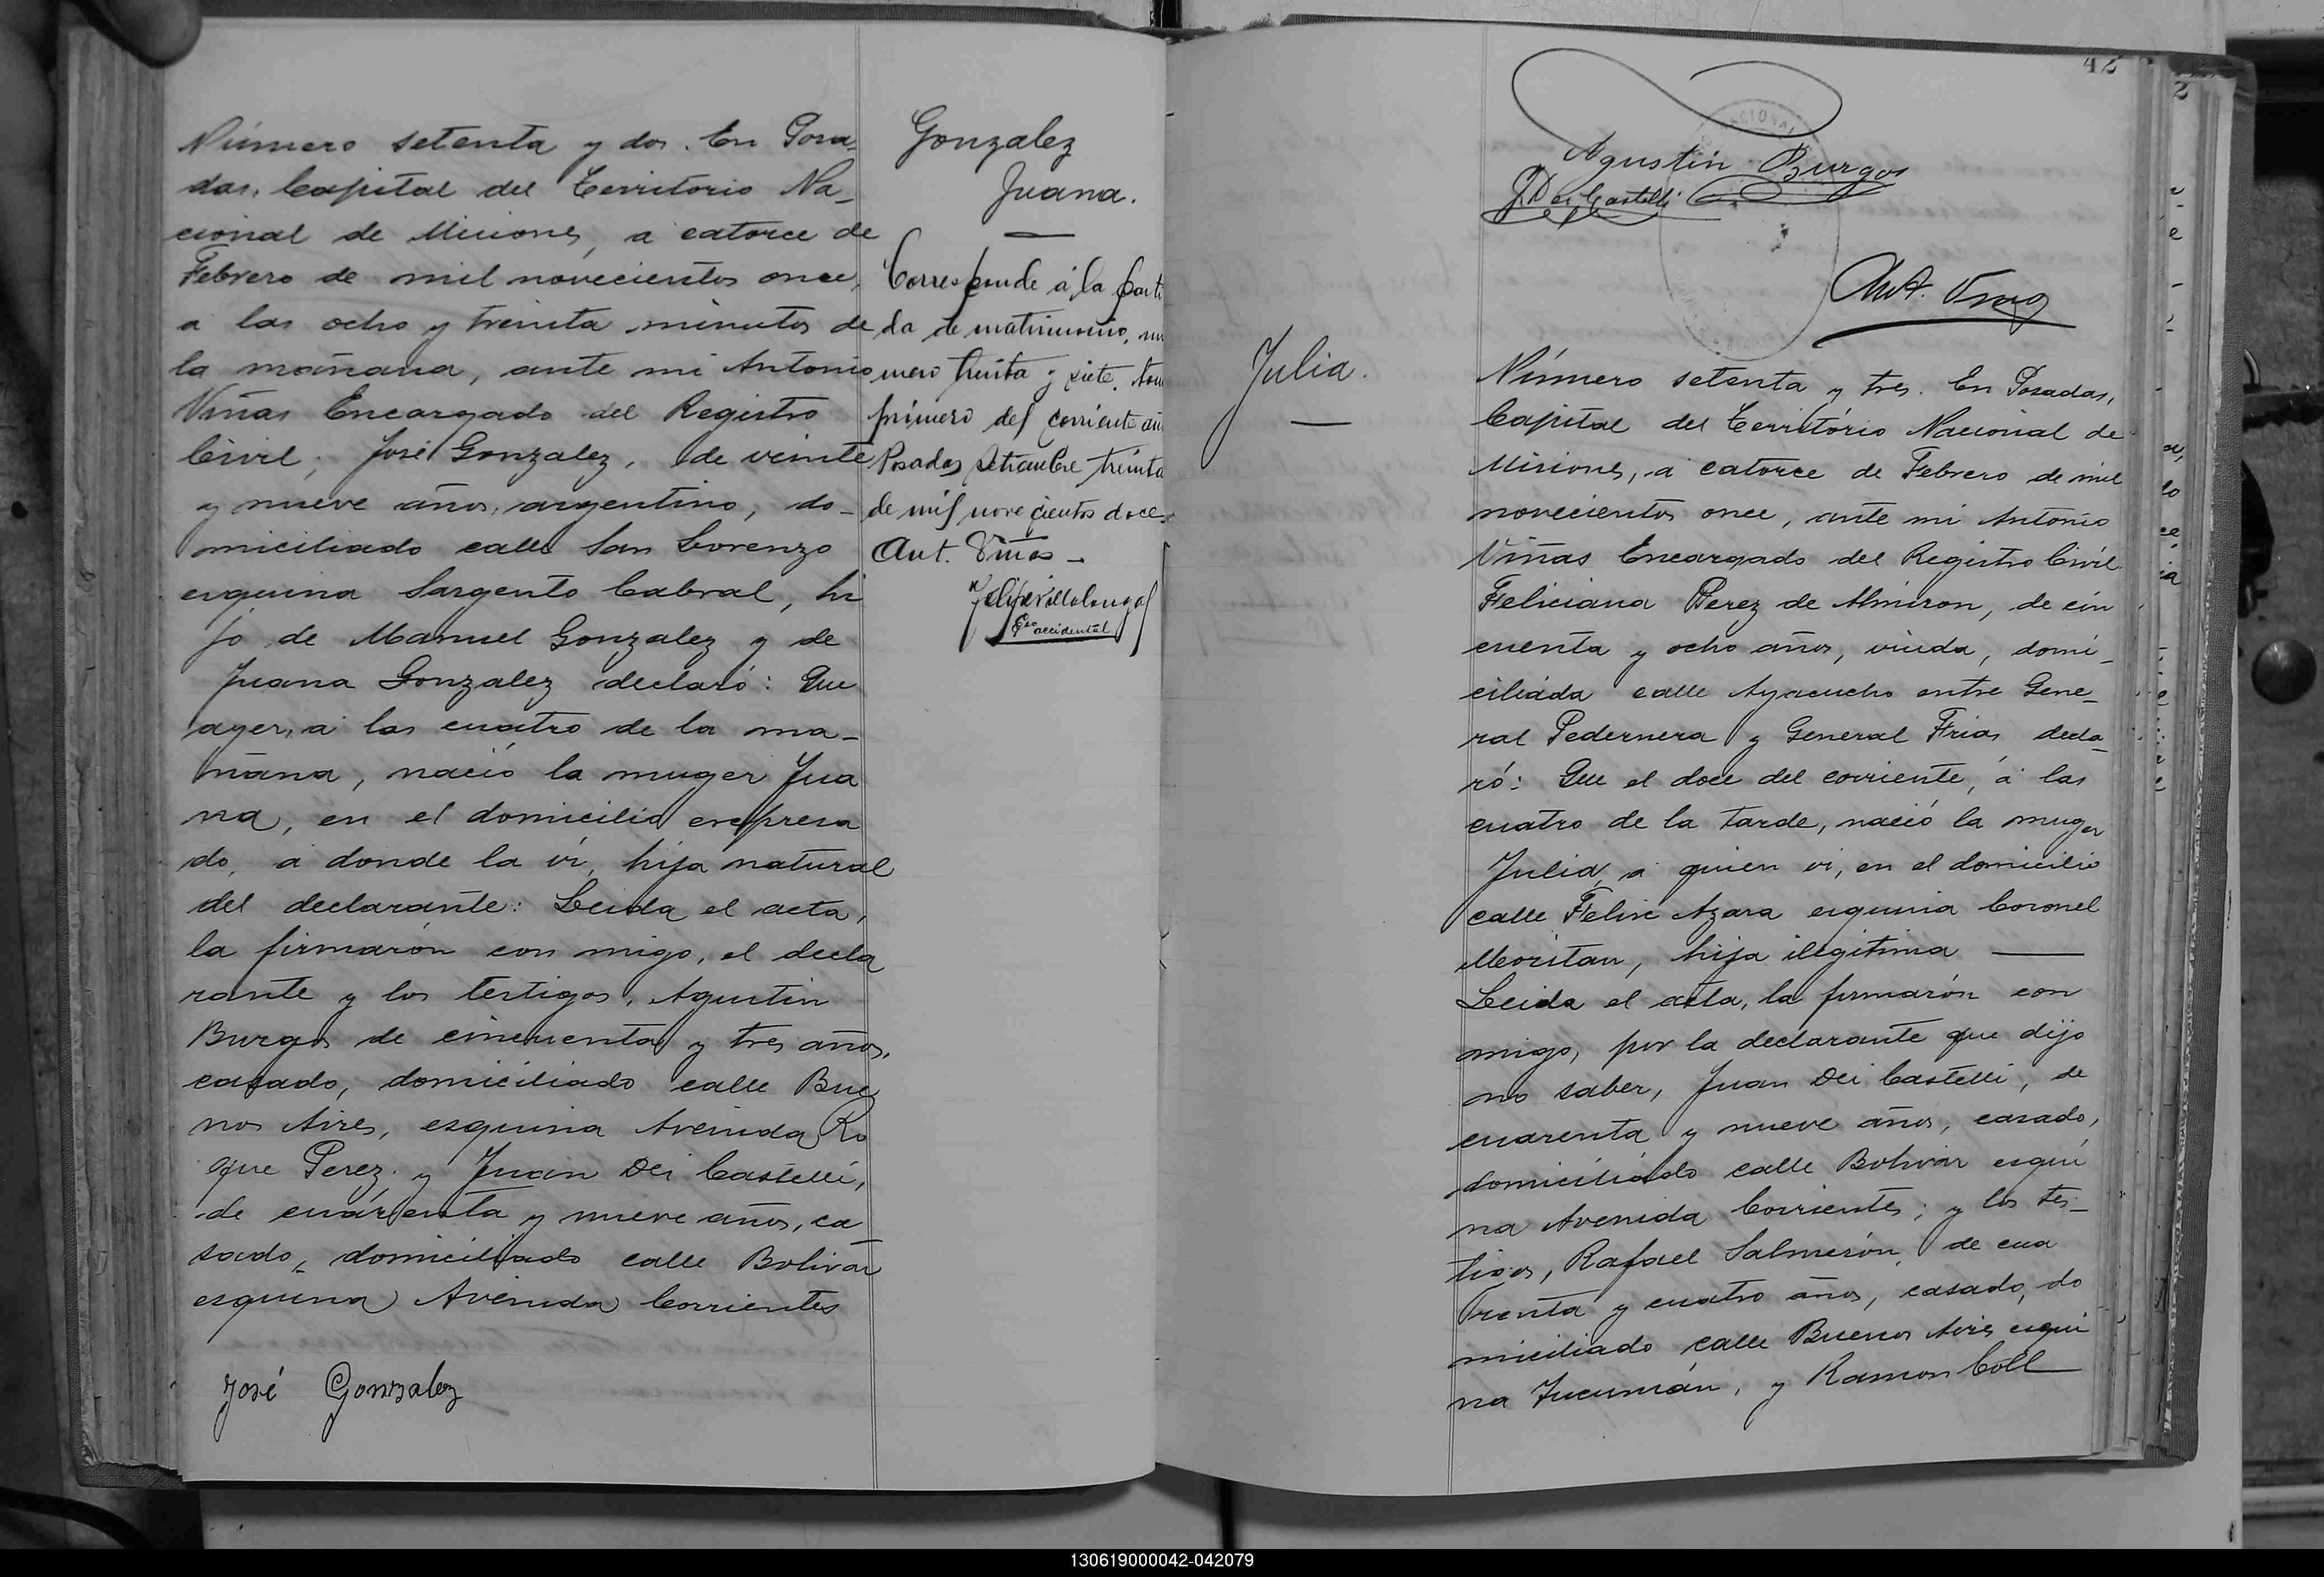 Número setenta y dos. En Posa-
das, Capital del Territorio Na-
cional de Misiones, a catorce de
Febrero de mil novecientos once,
a las ocho y treinta minutos de
la mañana, ante mi Antonio
Viñas Encargado del Registro
Civil; José Gonzalez, de veinte
y nueve años, argentino, do-
miciliado calle San Lorenzo
esquina Sargento Cabral, hi
jo de Manuel Gonzalez y de
Juana Gonzalez declaró: Que
ayer, a las cuatro de la ma-
ñana, nació la muger Jua
na, en el domicilio expresa
do, a donde la vi, hija natural
del declarante: Leida el acta,
la firmarón con migo, el decla
rante y los testigos, Agustin
Burgos de cincuenta y tres años,
casado, domiciliado calle Bue
nos Aires, esquina Avenida Ro
que Perez y Juan Dei Castelli,
de cuarenta y nueve años, ca
sado, domiciliado calle Bolivar
esquina Avenida Corrientes
José Gonzalez
Gonzalez
Juana.
Corresponde á la parti
da de matrimonio, nu
mero treinta y siete. tom
primero del corriente añ
Posadas Setiembre treinta
de mil novecientos doce.
Ant. Viñas -
Felipe Villalonga
Eso accidental
42
2
Agustin Burgos
J. Dei Castelli
Ant. Viñas
Julia.
Número setenta y tres. En Posadas,
Capital del Território Nacional de
Misiones, a catorce de Febrero de mil
novecientos once, ante mi Antonio
Viñas Encargado del Registro Civil
Feliciana Perez de Almiron, de cin
cuenta y ocho años, viuda, domi-
ciliada calle Ayacucho entre Gene-
ral Pedernera y General Frias decla-
ró: Que el doce del corriente, á las
cuatro de la tarde, nació la muger
Julia, a quien vi, en el domicilio
calle Felix Azara esquina Coronel
Moritan, hija ilegitima
Leida el acta, la firmarón con
migo, por la declarante que dijo
no saber, Juan Dei Castelli, de
cuarenta y nueve años, casado,
domiciliado calle Bolivar esqui
na Avenida Corrientes; y los tes-
tigos, Rafael Salmerón, de cua
renta y cuatro años, casado, do
miciliado calle Buenos Aires esqui
na Tucumán, y Ramon Coll
130619000042-042079